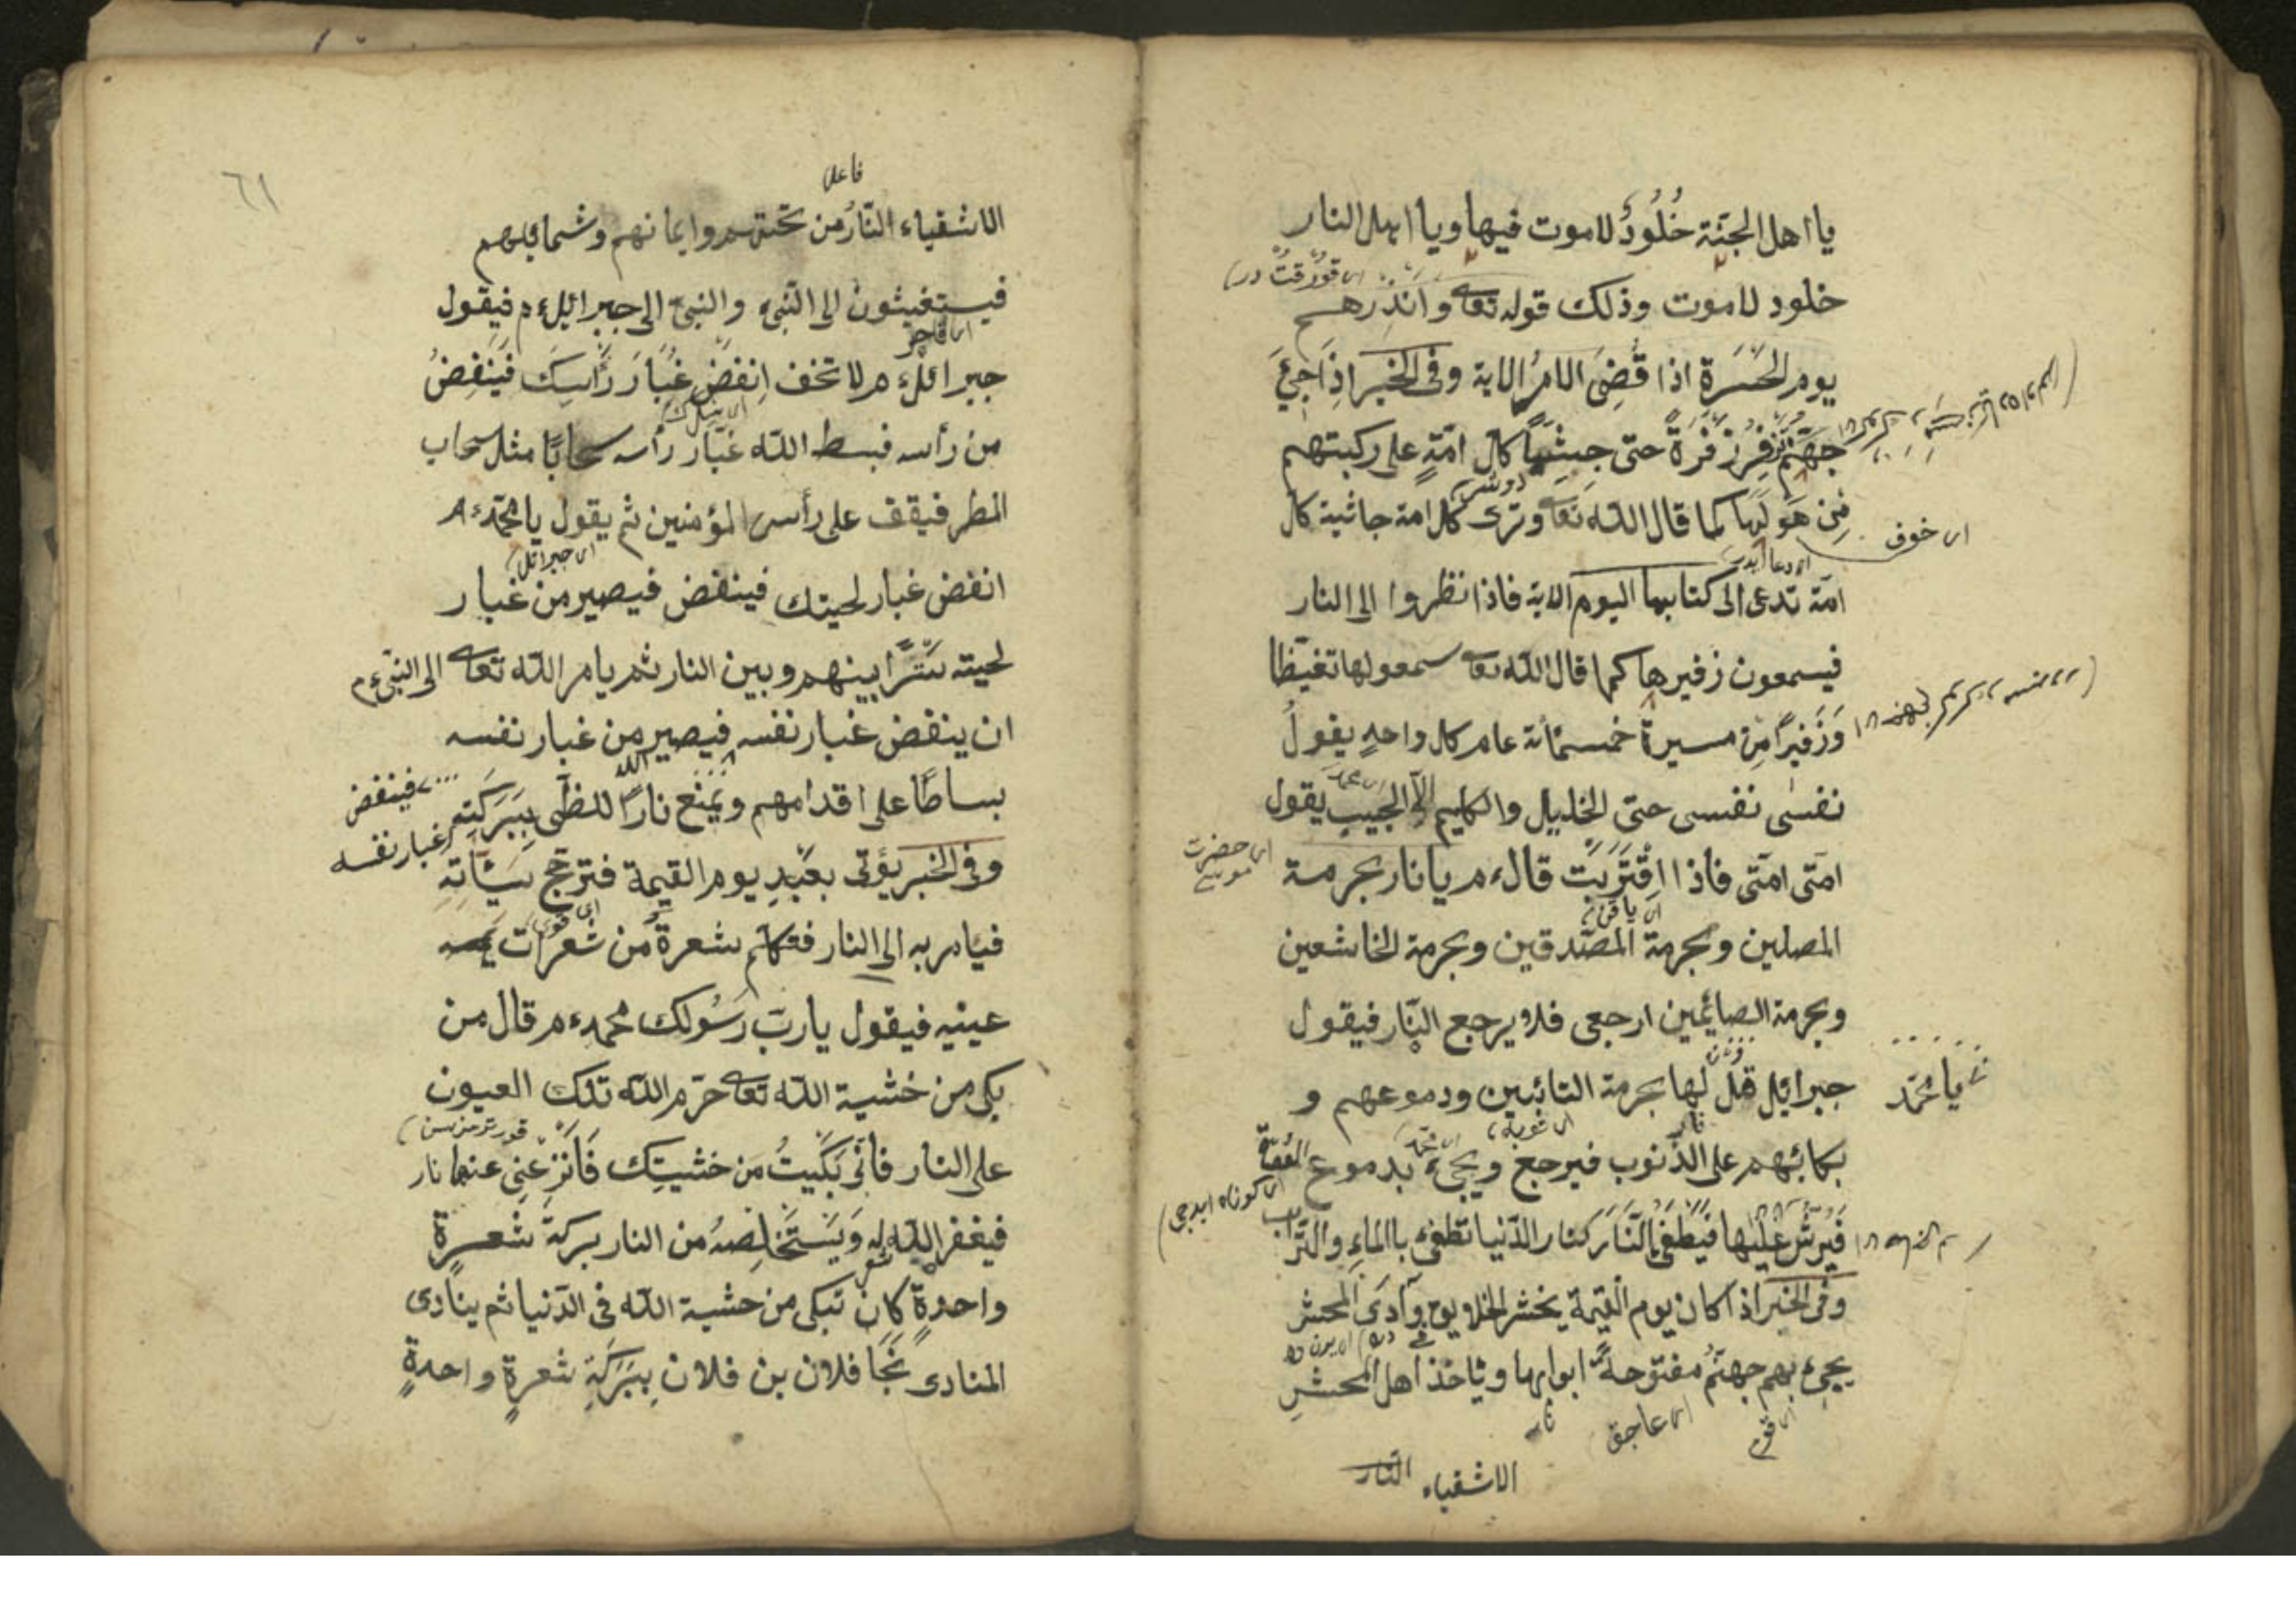 يا اهل الجنّة خُلُودٌ لاموت فيها ويا اهل النار
خلود لاموت وذلك قوله تعا وانذرهم
يوم الحَسَرة اذا قُضِىَ الامرُ الاية وفى الخبر اِذا جِئَ
جهنّم تزفِرُ زَفْرَةً حتى جِثِيًّا كل امّةٍ على ركبتهم
مِن هَولِها كما قال الله تعا وترى كل امة جاثية كل
اى خوف
امّة تدعى الى كتابها اليوم الاية فاذا نظروا الى النار
فيسمعون زفيرها كما قال الله تعا سمعولها تغيّظا
وَزَفيرًا مِن مسيرة خمسمائة عام كل واحدٍ يقولُ
نفسى نفسى حتى الخليل والكليم الّا الحَبِيب يقول
اى حضرت
امّتى امّتى فاذا اقْتَرَبَت قالءم يا نار بحرمة
المصلين وبحرمة المصّدقين وبحرمة الخاشعين
وبحرمة الصائمين ارجعى فلا يرجع النّار فيقول
جبرائيل قل لها بحرمة التائبين ودموعهم و
يا محمّد
بكائهم على الذّنوب فيرجع ويجئ بدموع العُصَاة
فَيُرَشُّ عليها فيُطفَى النّار كنار الدّنيا تطفئ باالماءِ والتّراب
وفى الخبر اذا كان يوم القيمة يحشر الخلايق وادَى المحشر
يجئ بهم جهنّم مفتوحةً ابوابها وياخذ اهل المحشرِ
الاشقياء النّار
٦١
فاعل
الاشقياء النّارُ من تحتهم وايمانهم وشمائلهم
فيستغيثون الى النّبى والنبى الى جبرائيلءم فيقول
جبرائلءم لا تخف اِنفِضْ غُبَارَ رَأسِكَ فَيَنفِضُ
من رأسه فبسط الله غبار رأسه سحابًا مثل سحاب
المطر فيقف على رأس المؤمنين ثم يقول يا محمّدءم
اى جبرائل
انفض غبار لحيتك فينفض فيصير من غبار
لحيته سَتْرًا بينهم وبين النار ثم يامر الله تعا الى النّبىءم
ان ينفض غبار نفسه فيصير من غبار نفسه
فينفض غبار نفسه
بساطًا على اقدامهم ويَمْنَع نارًا للظّى بِبَرَكَتِه
وفى الخبر يؤتى بعَبْدٍ يوم القيمة فترجّح سَيّأتِهِ
فيامر به الى النار فتكلّم شعرةٌ من شعرات
عينيه فيقول يا ربّ رَسُولك محمدءم قال من
بكى من خشية الله تعا حرّم الله تلك العيون
على النار فانّى بَكَيتُ من خشيتِك فَانْزِعْنِى عنها نار
فيغفر الله له وَيَسْتَخلِصهُ من النار بركة شعرةٍ
واحدةٍ كان تبكى من خشية الله فى الدّنيا ثم ينادى
المنادى نَجَا فلان بن فلان بِبَرَكَةِ شعرةٍ واحدةٍ